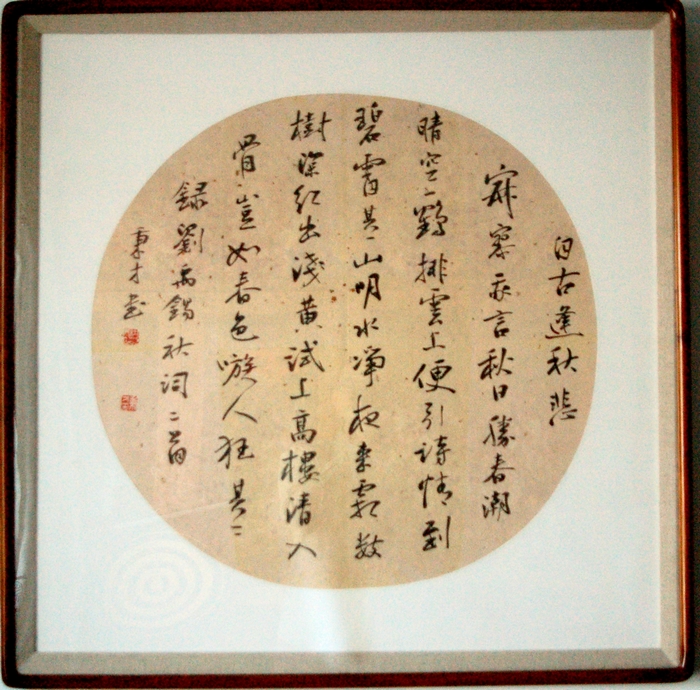 自古逢秋悲
寂寥我言秋日勝春潮
晴空一鶴排雲上便引詩情到
碧霄其一山明水淨夜來霜數
樹深紅出淺黃試上高樓清入
骨豈如春色嗾人狂其二
錄劉禹錫秋詞二首
秉才書